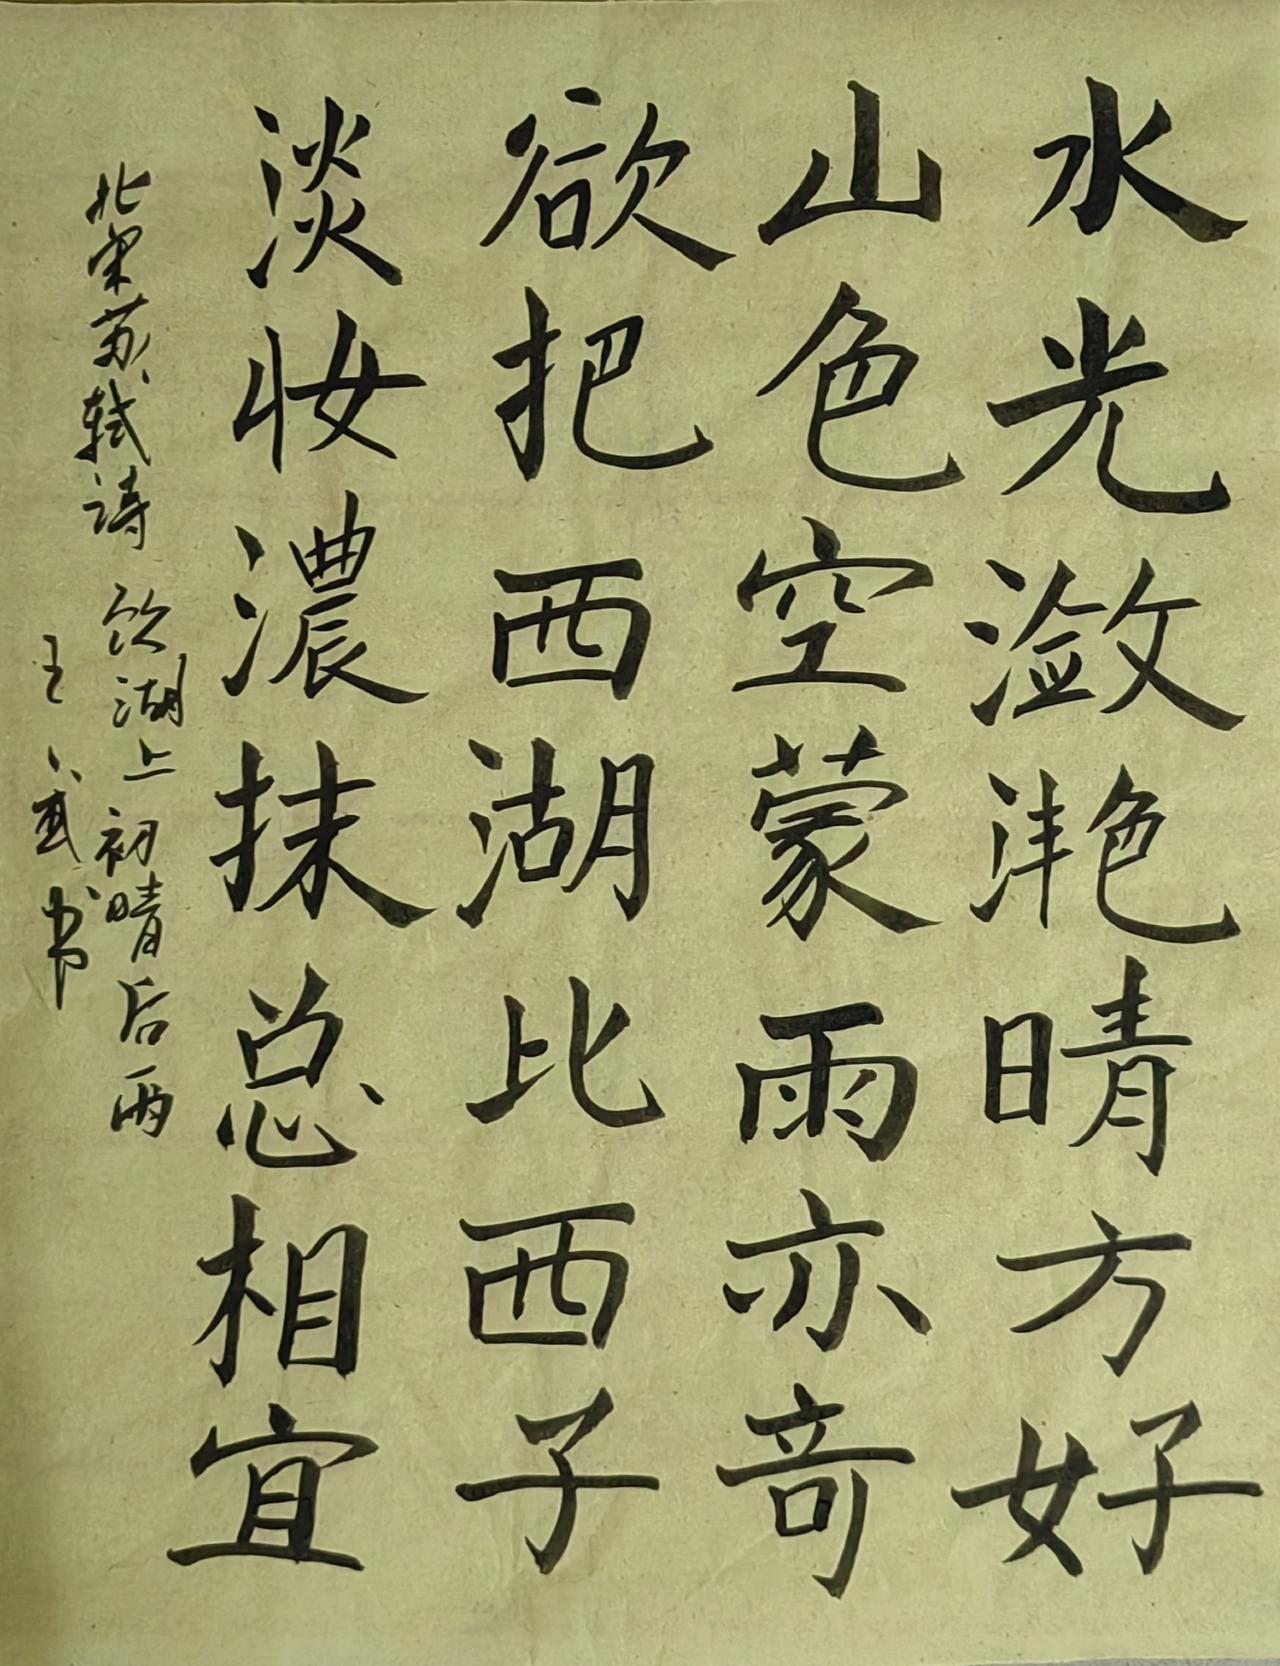 水光潋滟晴方好
山色空蒙雨亦奇
欲把西湖比西子
淡妆濃抹总相宜
北宋苏轼诗 饮湖上初晴后雨
王 武书